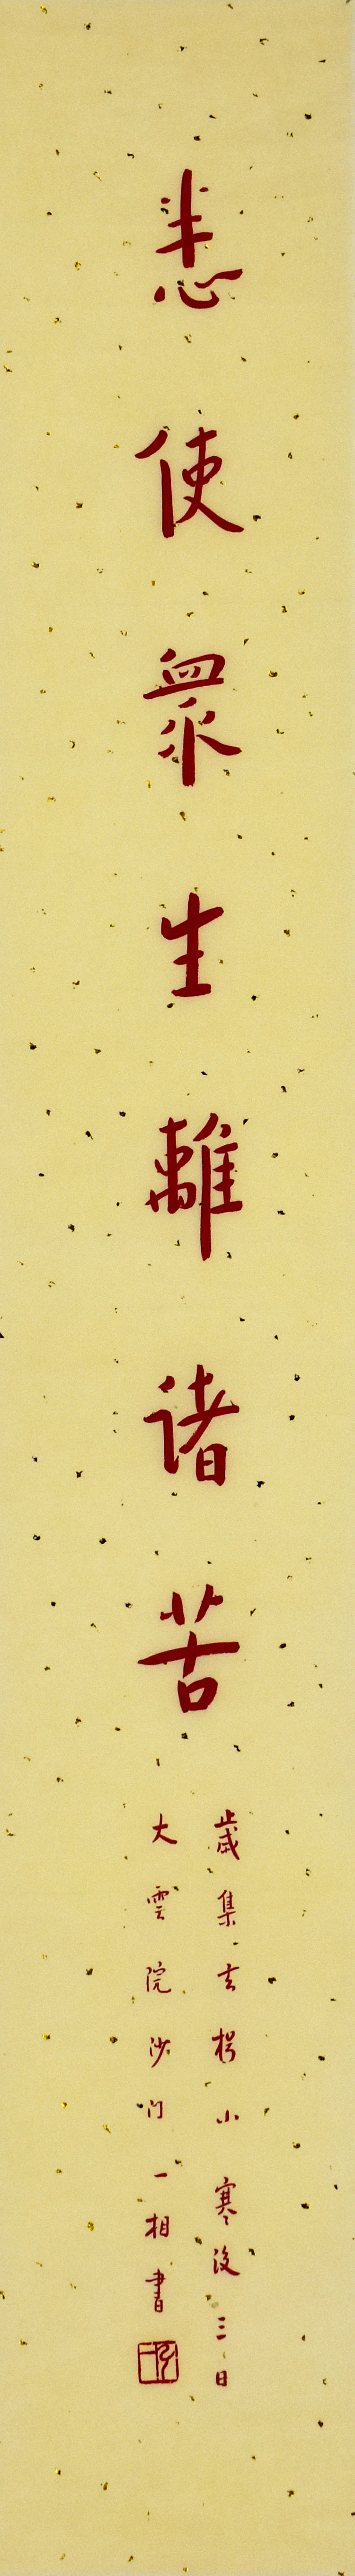 悉使眾生離諸苦
歲集玄枵小寒後三日
大雲院沙门一相書